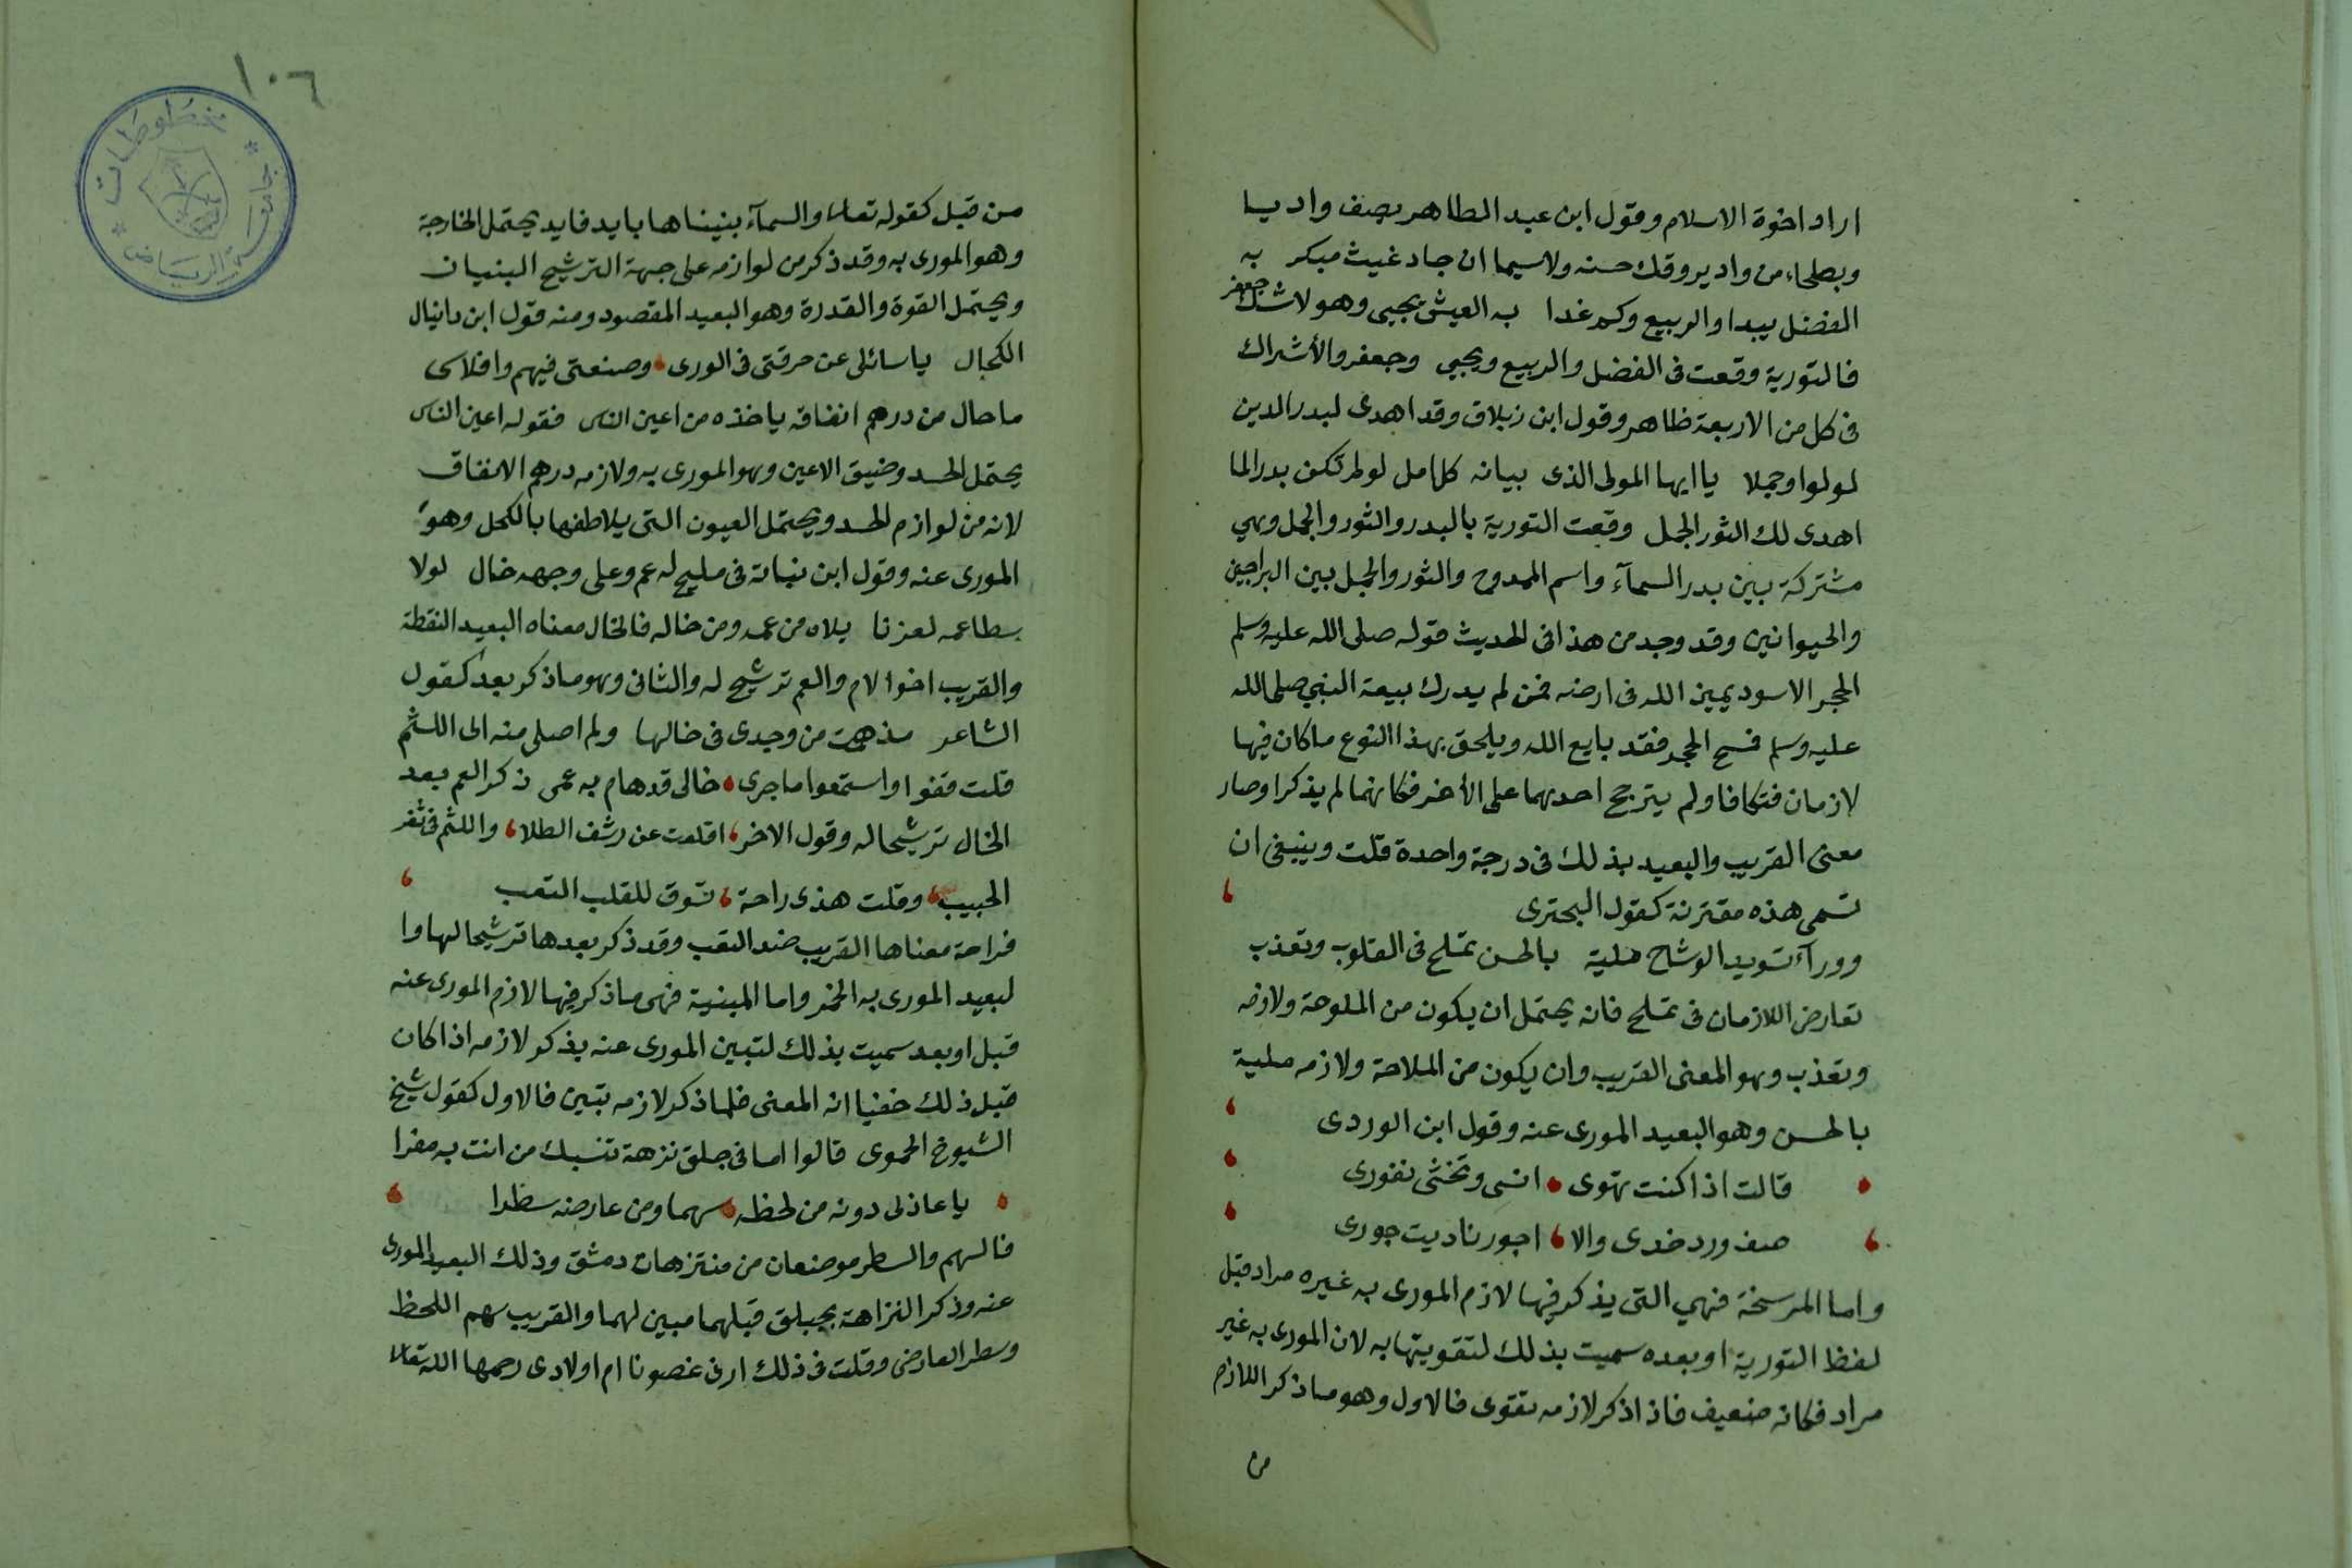 اراد اخوة الاسلام وقول ابن عبد الظاهر يصف واديا
وبطحاء من واد يروقك حسنه ولاسيما ان جاد غيث مبكر به
الفضل يبدا والربيع وكم غدا به العيش يحيى وهو لاشك جعفر
فالتورية وقعت فى الفضل والربيع ويحيى وجعفر والأشتراك
فى كل من الاربعة ظاهر وقول ابن زبلاق وقد اهدى لبدر الدين
لولوا وجملا يا ايها المولى الذى بيانه كلامل لو لم تكن بدرا لما
اهدى لك الثور الجمل وقعت التورية بالبدر والثور والجمل وهي
مشتركة بين بدر السمآء واسم الممدوح والثور والجمل بين البراجين
والحيوانين وقد وجد من هذا فى الحديث قوله صلى الله عليه وسلم
الحجر الاسود يمين الله فى ارضه فمن لم يدرك بيعة النبي صلى الله
عليه وسلم فمسح الحجر فقد بايع الله ويلحق بهذا النوع ماكان فيها
لازمان فتكافا ولم يترجح احدهما على الأخر فكانهما لم يذكرا وصار
معنى القريب والبعيد بذلك فى درجة واحدة قلت وينبغى ان
تسمى هذه مقترنة كقول البحترى
وورآء تسويد الوشاح ملية بالحسن تملح فى القلوب وتعذب
تعارض اللازمان فى تملح فانه يحتمل ان يكون من الملوحة ولازمه
وتعذب وهو المعنى القريب وان يكون من الملاحة ولازمه ملية
بالحسن وهو البعيد المورى عنه وقول ابن الوردى
قالت اذا كنت تهوى انسى وتخشى نفورى
صف ورد خدى والا اجور ناديت جورى
واما المرسخة فهي التى يذكر فيها لازم المورى به غيره مراد قبل
لفظ التورية او بعده سميت بذلك لتقويتها به لان المورى به غير
مراد فكانه ضعيف فاذا ذكر لازمه تقوى فالاول وهو ما ذكر اللازم
من
١٠٦
مخطوطات
جامعة الرياض
من قبل كقوله تعالى والسمآء بنيناها بايد فايد يحتمل الخارجة
وهو المورى به وقد ذكر من لوازمه على جهة الترشيح البنيان
ويحتمل القوة والقدرة وهو البعيد المقصود ومنه قول ابن دانيال
الكحال يا سائلى عن حرفتى فى الورى وصنعتى فيهم وافلاسى
ما حال من درهم انفاقه ياخذه من اعين الناس فقوله اعين الناس
يحتمل الحسد وضيق الاعين وهو المورى به ولازمه درهم الانفاق
لانه من لوازم الحسد ويحتمل العيون التى يلاطفها بالكحل وهو
المورى عنه وقول ابن نباتة فى مليح له عم وعلى وجهه خال لولا
سطا عمه لعزنا بلاه من عمه ومن خاله فالخال معناه البعيد النقطة
والقريب اخوا لام والعم ترشيح له والثانى وهو ماذكر بعد كقول
الشاعر مذ همت من وجدى فى خالها ولم اصلى منه الى اللثم
قلت قفوا واستمعوا ما جرى خالى قد هام به عمى ذكر العم بعد
الخال ترشيحا له وقول الاخر اقلعت عن رشف الطلا واللثم فى ثغر
الحبيب وقلت هذى راحة تسوق للقلب التعب
فراحة معناها القريب ضد التعب وقد ذكر بعدها ترشيحا لها وا
لبعيد المورى به الخمر واما المبنية فهى ماذكر فيها لازم المورى عنه
قبل او بعد سميت بذلك لتبين المورى عنه بذكر لازمه اذا كان
قبل ذلك خفيا انه المعنى فلما ذكر لازمه تبين فالاول كقول شيخ
الشيوخ الحموى قالوا اما فى جلق نزهة تنسيك من انت به مغرا
يا عاذلى دونه من لحظه سهما ومن عارضه سطرا
فالسهم والسطر موضعان من منتزهات دمشق وذلك البعيد المورى
عنه وذكر النزاهة بجلق قبلهما مبين لهما والقريب سهم اللحظ
وسطر العارض وقلت فى ذلك ارى غصونا ام اولادى رحمها الله تعالى